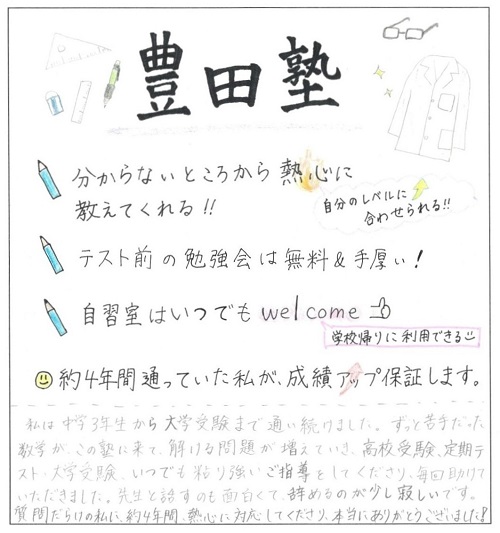 豊田塾
分からないところから 熱心に
教えてくれる!!
自分のレベルに
合わせられる!!
テスト前の勉強会は無料&手厚い!
自習室はいつでもwelcome
学校帰りに利用できる
約4年間通っていた私が、成績アップ保証します。
私は中学3年生から大学受験まで通い続けました。ずっと苦手だった
数学が、この塾に来て、解ける問題が増えていき、高校受験、定期テ
スト、大学受験、いつでも粘り強いご指導をしてくださり、毎回助けて
いただきました。先生と話すのも面白くて、辞めるのが少し寂しいです。
質問だらけの私に、約4年間、熱心に対応してくださり、本当にありがとうございました!